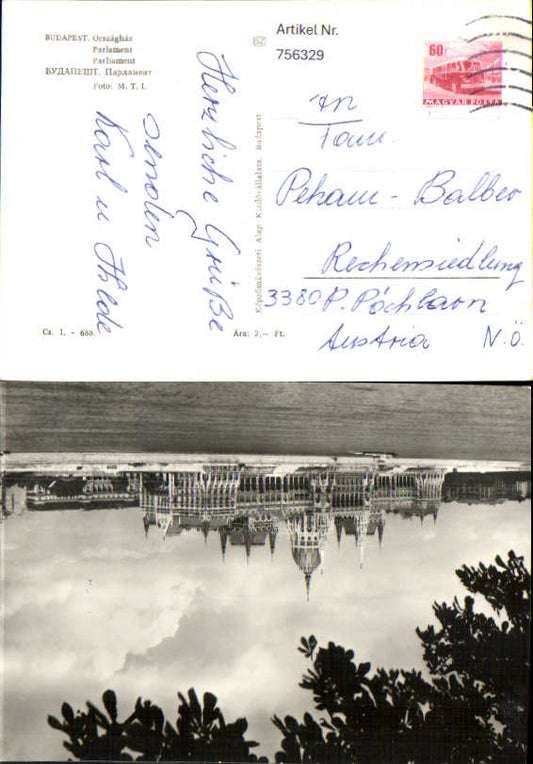 BUDAPEST. Országház
Parlament
Parliament
БУДАПЕШТ. Парламент
Foto: M. T. I.
Herzliche Grüße
senden
Karl u
Ca. 1. - 658.
Ára: 2,— Ft.
Képzőművészeti Alap Kiadóvállalata, Budapest
Artikel Nr.
756329
60f
MAGYAR POSTA
An
Fam.
Peham - Balber
Rechensiedlung
3380 P. Pöchlarn
Austria N.Ö.